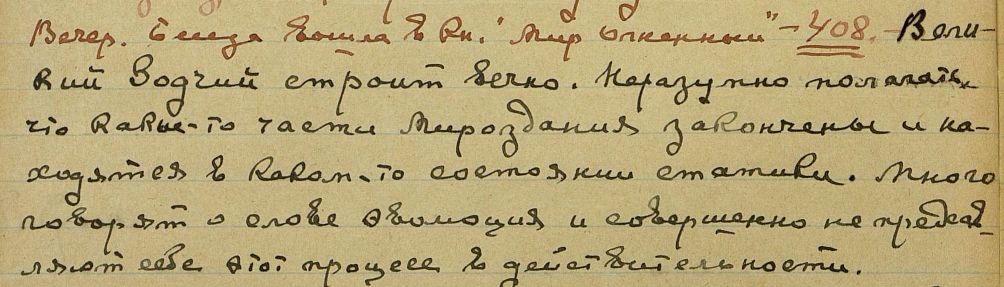 Вечер. Беседа вошла в кн. "Мир Огненный" – 408. – Вели-
кий Зодчий строит вечно. Неразумно полагать,
что какие-то части Мироздания закончены и на-
ходятся в каком-то состоянии статики. Много
говорят о слове эволюция и совершенно не представ-
ляют себе этот процесс в действительности.